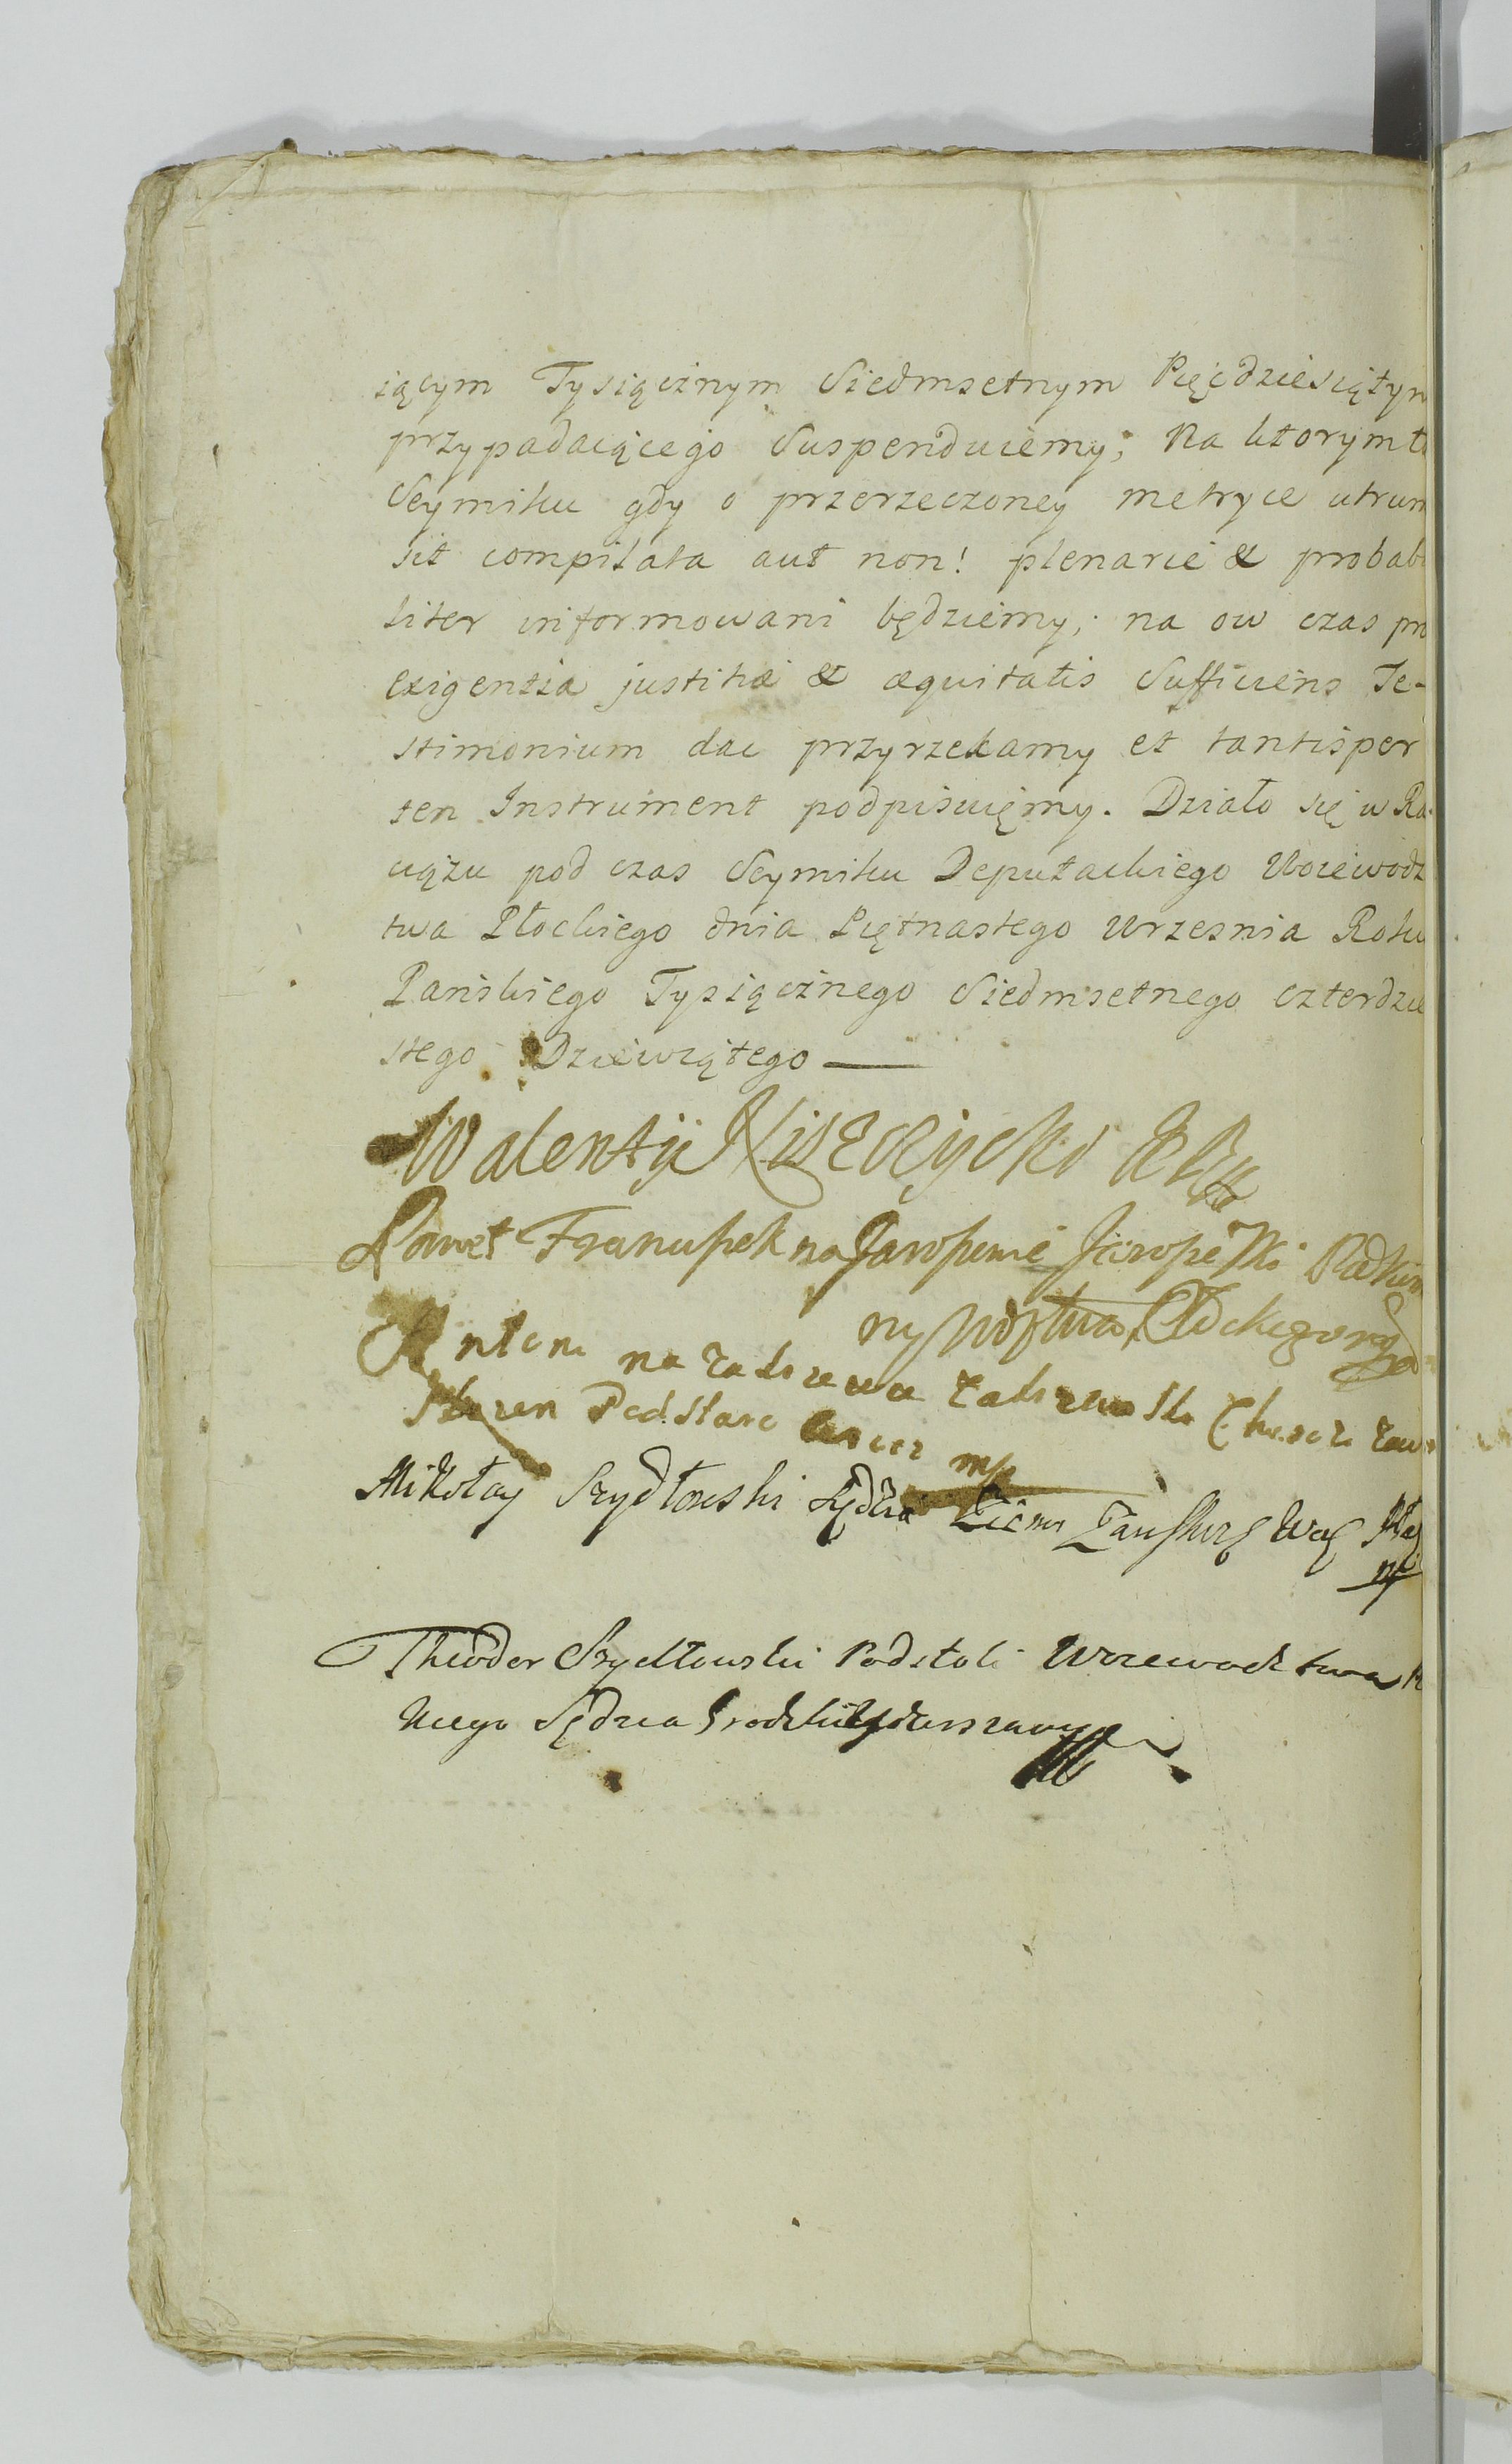 iącym Tysiącznym Siedmsetnym Pięćdziesiątym
przypadaiącego Suspenduiemy; Na ktorym
Seymiku gdy o przerzeczoney metryce utrum
sit compilata aut non! plenarie & probabi
liter informowani będziemy; na ow czas pro
exigentia justitiæ & æquitatis Sufficiens Te-
stimonium dac przyrzekamy et tantisper
ten Instrument podpisuięmy. Działo się w Ra-
ciążu pod czas Seymiku Deputackiego Woiewodz
twa Płockiego dnia Piętnastego Wrzesnia Roku
Pańskiego Tysiącznego Siedmsetnego czterdzie
stego Dziewiątego
Walentÿ
Paweł Franciszek na
Antoni na
mp
Mikołay Szydłowski Sędzia Ziems Zawskrz
mp
Theodor Szydłowski Podstoli Woiewodztwa
ckiego Sędzia Grodzki